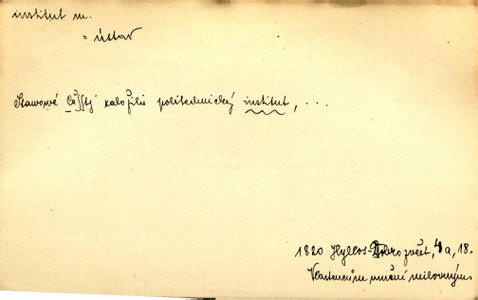 institut m.
= ústav
Stawowé češſtj založili politechnický institut, ...
1820 Hyllos-Dobrozvěst, 4a, 18.
Vlastencům umění milovným.